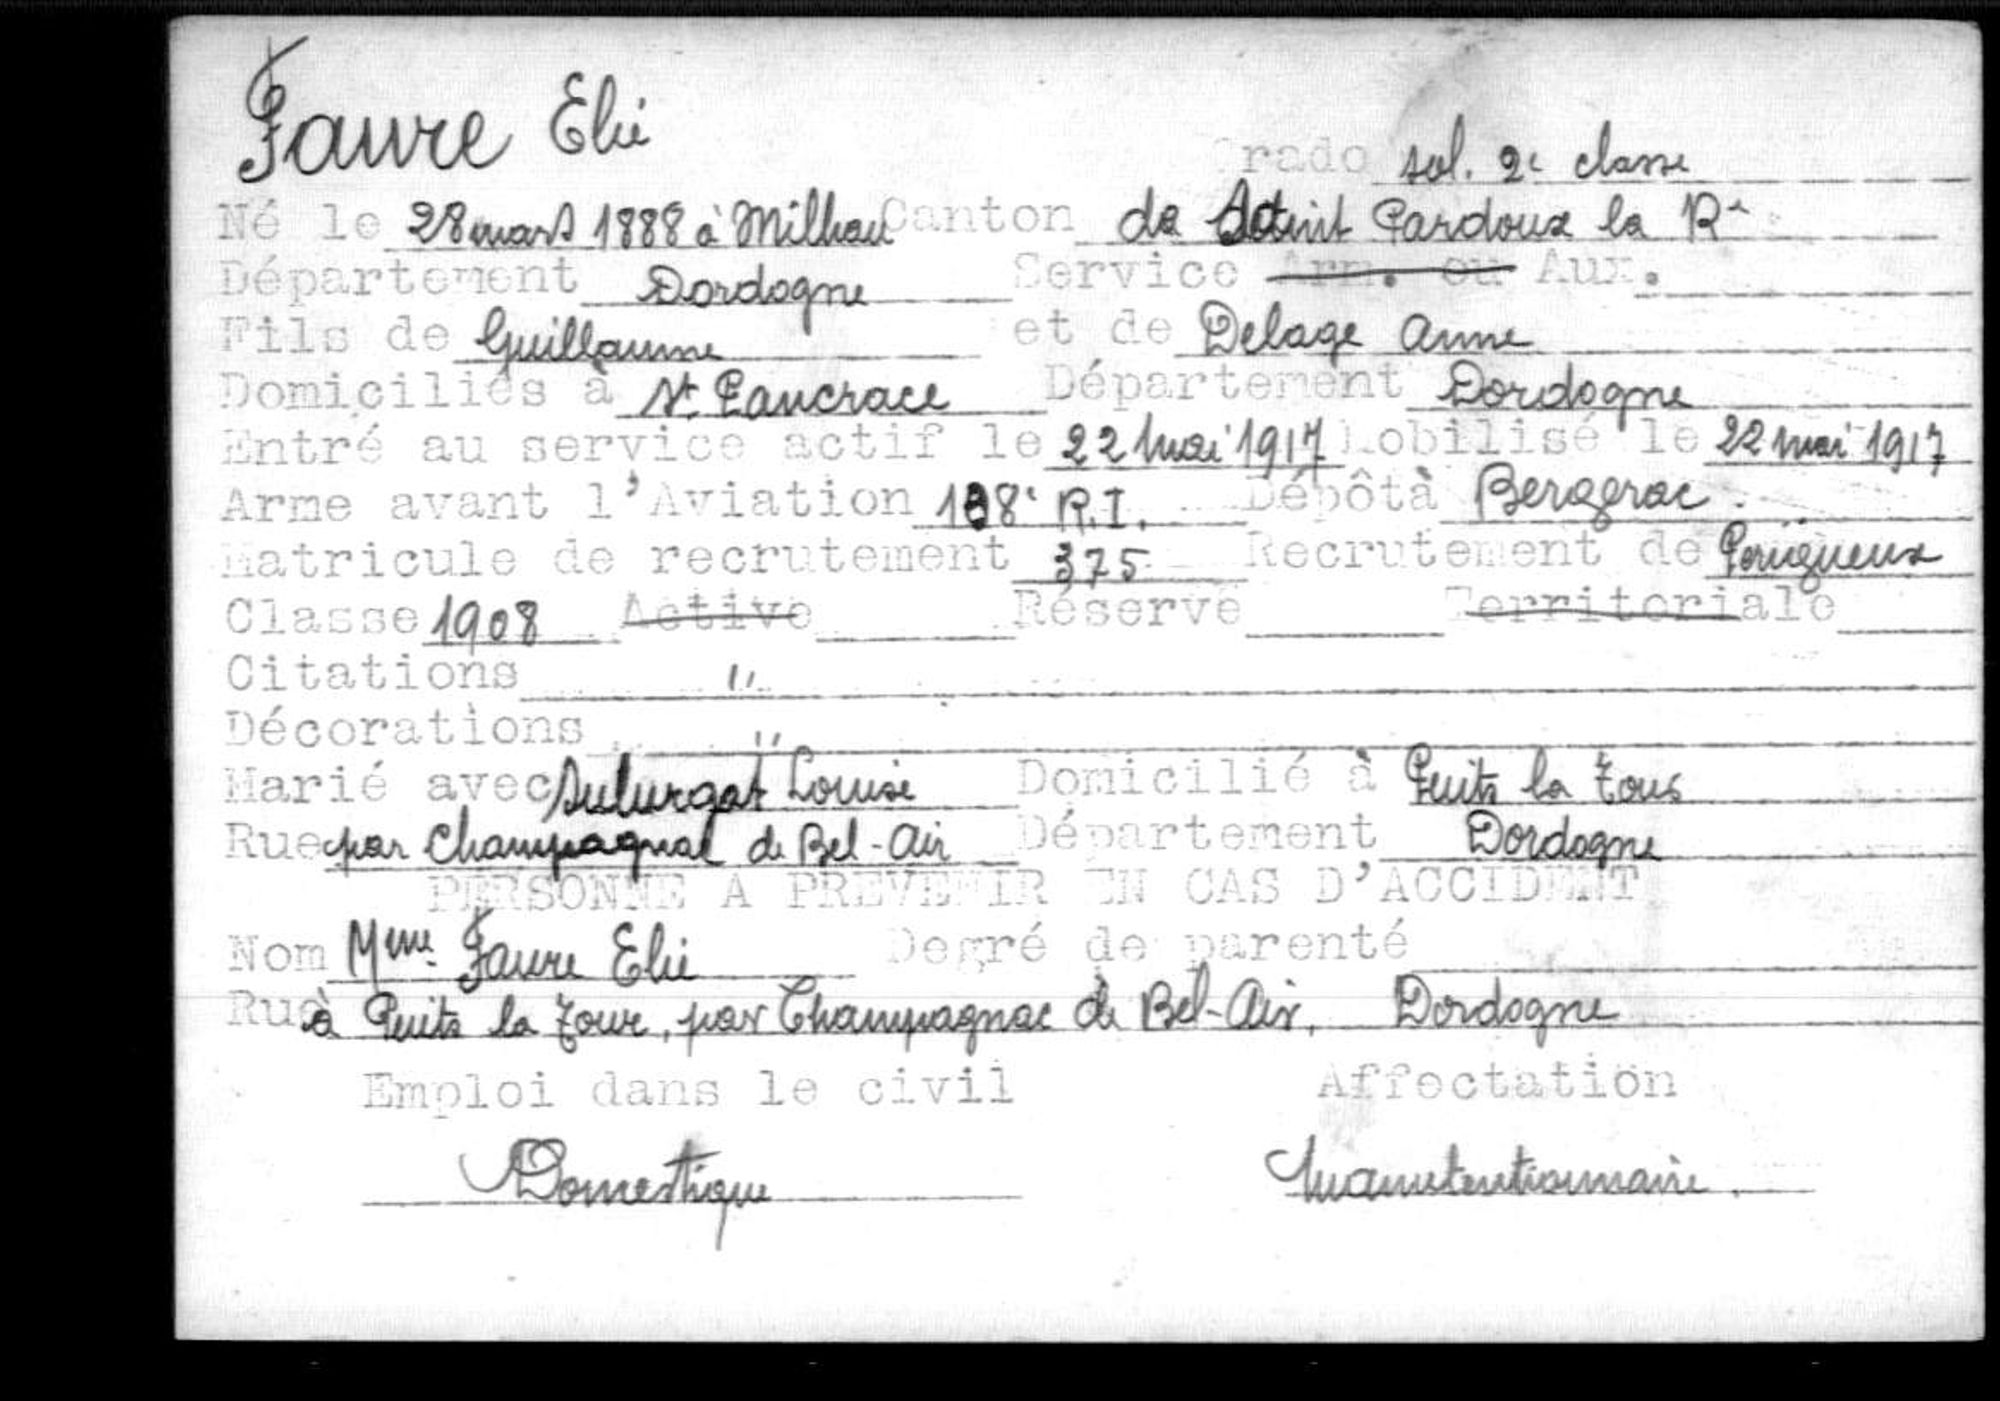 Faure Elie
Grade sol. 2e classe
Né le 28 mars 1888 à Milhau Canton de Saint Pardoux la Re
Département Dordogne Service Arm. ou Aux.
Fils de Guillaume et de Delage Anne
Domiciliés à St. Pancrace Département Dordogne
Entré au service actif le 22 mai 1917 Mobilisé le 22 mai 1917
Arme avant l'Aviation 108e R.I. Dépôt à Bergerac
Matricule de recrutement 375 Recrutement de Périgueux
Classe 1908 Active Réserve Territoriale
Citations "
Décorations "
Marié avec Louise Domicilié à Puits la Tour
Rue par Champagnac de Bel-Air Département Dordogne
PERSONNE A PREVENIR EN CAS D'ACCIDENT
Nom Mme Faure Elie Degré de parenté
Rue à Puits la Tour, par Champagnac de Bel-Air, Dordogne
Emploi dans le civil Affectation
Domestique manutentionnaire.